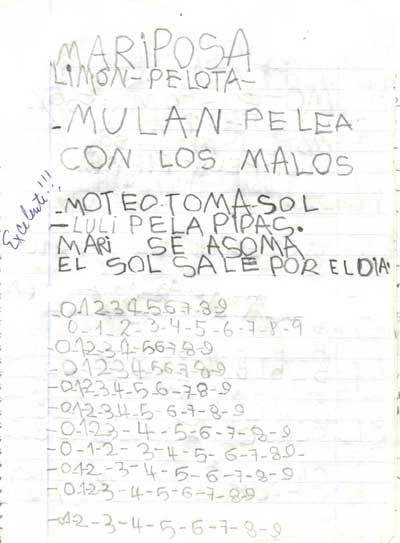 MARiPOSA
LIMON-PELOTA-
-MULAN-PELEA
CON LOS MALOS
Excelente!!!
-MOTEO-TOMA-SOL
-LULI PELA PIPAS.
MARI SE ASOMA
EL SOL SALE POR EL DIA.
-0123456789
0-1-2-3-4-5-6-7-8-9
-0123-4-56789
-0123456789
-01234-5-6-7-8-9
-01234-5-6-7-8-9
-0123-4-5-6-7-8-9
-0-1-2-3-4-5-6-7-8-9-
-012-3-4-5-6-7-8-9
-0123-4-5-6-7-89
-012-3-4-5-6-7-8-9